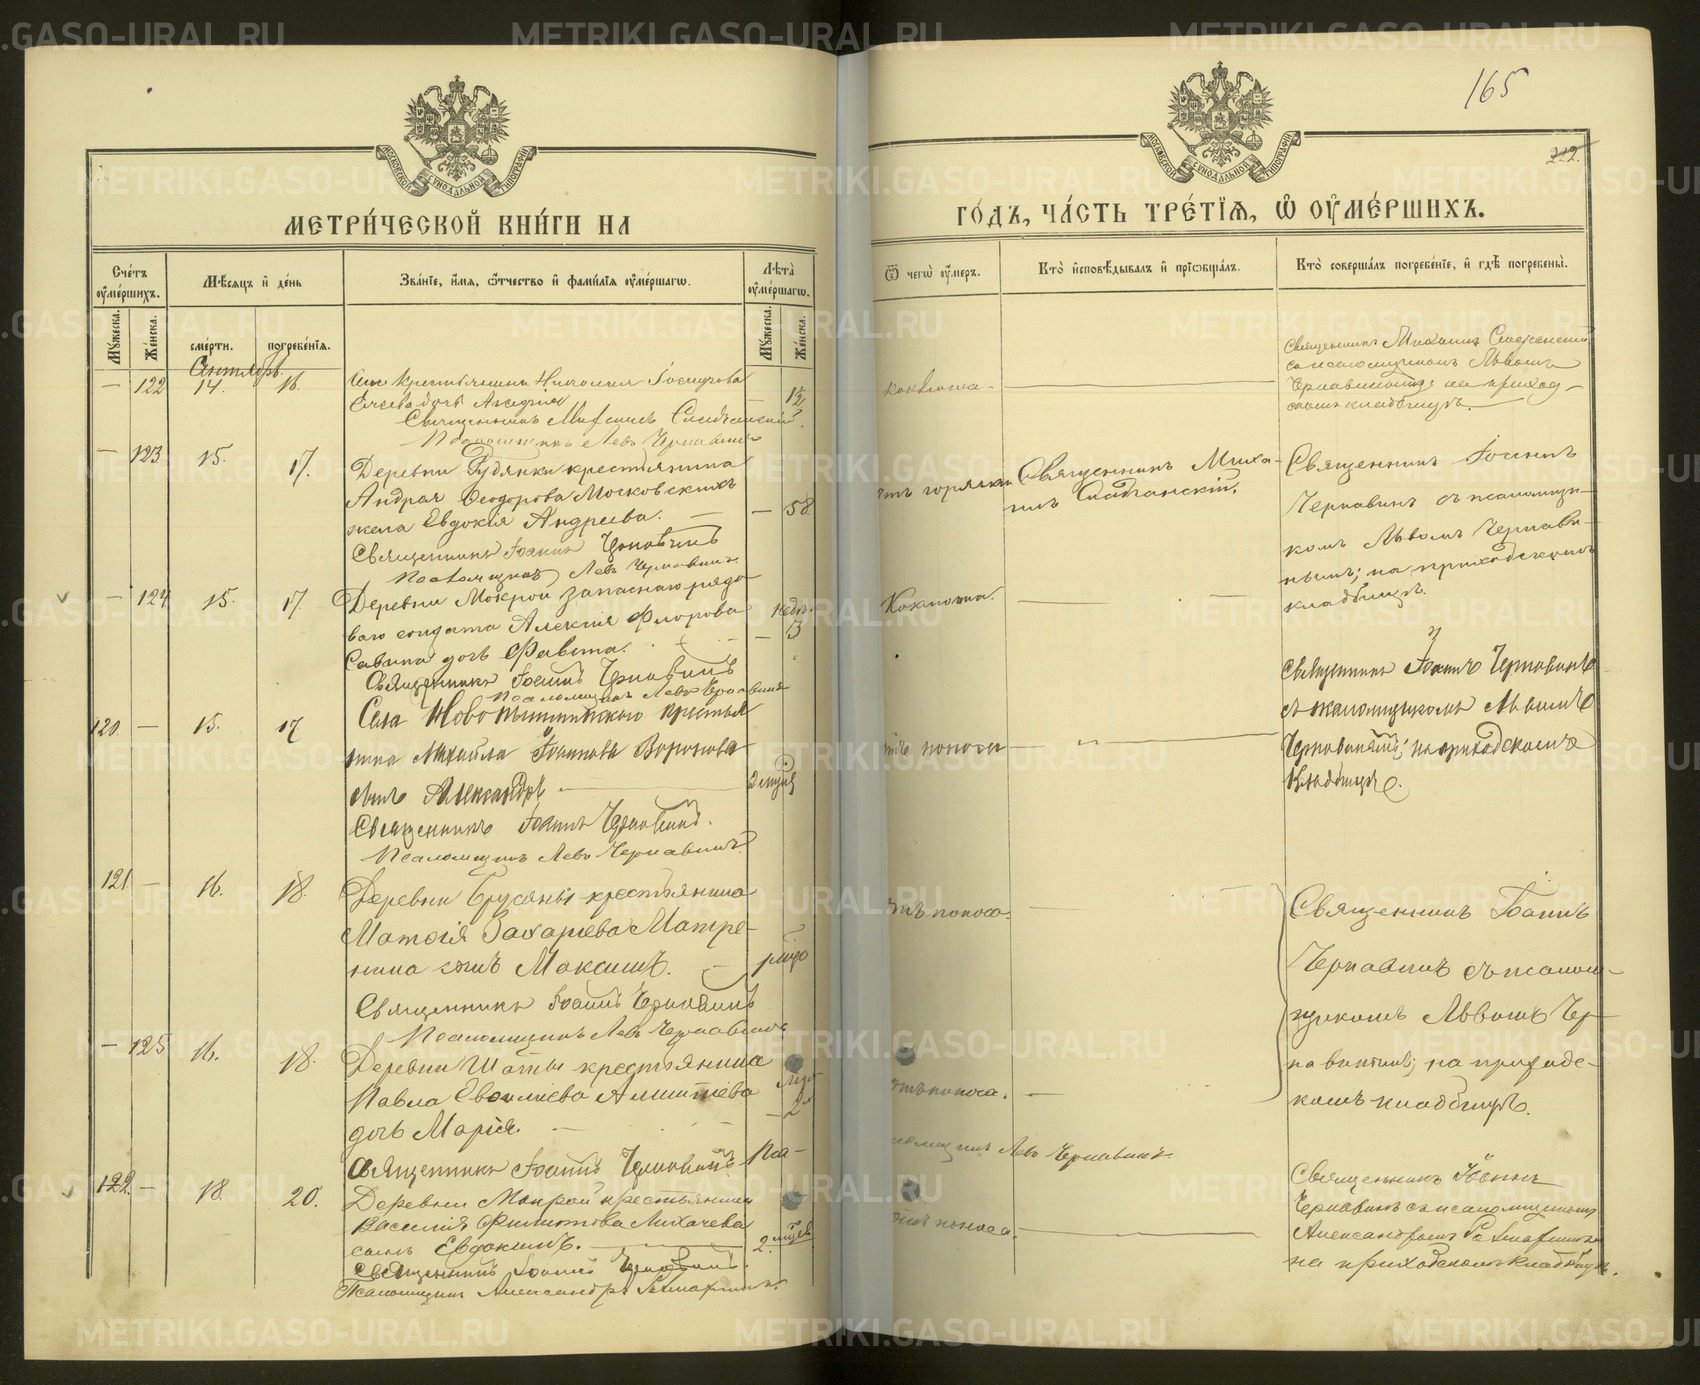 METRIKI.GASO-URAL.RU
165
222.
МОСКОВСКОЙ СѴНОДАЛЬНОЙ ТИПОГРАФІИ
МЕТРИ́ЧЕСКОЙ КНИ́ГИ НА
Сче́тъ ᲂу҆ме́ршихъ.
Мѣ́сяцъ и҆ де́нь
Зва́нїе, и҆́мя, ѻ҆́тчество и҆ фами́лїя ᲂу҆ме́ршагѡ.
Лѣта̀ ᲂу҆ме́ршагѡ.
Мꙋ́жеска.
Же́нска.
сме́рти.
погребе́нїя.
Мꙋ́жеска.
Же́нска.
Сентябрь.
— 122 14. 16.
дочь
Священникъ
Псаломщикъ Левъ Чернавинъ
— 123 15. 17.
Деревни Рудянки крестьянина
Андрея Ѳеодорова Московскихъ
жена Евдокія Андреева. — — 58
Священникъ Іоаннъ Чернавинъ
Псаломщикъ Левъ Чернавинъ
— 124 15. 17.
Деревни Мокрой запаснаго рядо-
ваго солдата Алексія Флорова
Савина дочь Фавста. — 3
Священникъ Іоаннъ Чернавинъ
Псаломщикъ Левъ Чернавинъ
120 — 15. 17
Села Новопышминскаго крестья
нина Михаила Іоаннова Воронова
сынъ Александръ — 2
Священникъ Іоаннъ Чернавинъ.
Псаломщикъ Левъ Чернавинъ
121 — 16. 18.
Деревни Брусяны крестьянина
Матѳія Захаріева Матре-
нина сынъ Максимъ. —
Священникъ Іоаннъ Чернавинъ
Псаломщикъ Левъ Чернавинъ
— 125 16. 18.
Деревни Шаты крестьянина
Павла
дочь Марія. — 2
Священникъ Іоаннъ Чернавинъ Пса-
122 — 18. 20.
Деревни Мокрой крестьянина
Василія Филиппова Лихачева
сынъ Евдокимъ. — 2
Священникъ Іоаннъ Чернавинъ.
Псаломщикъ Александръ
МОСКОВСКОЙ СѴНОДАЛЬНОЙ ТИПОГРАФІИ
ГО́ДЪ, ЧА́СТЬ ТРЕ́ТЇЯ, Ѽ ОУ҆МЕ́РШИХЪ.
Ѿ чегѡ̀ ᲂу҆́меръ.
Кто̀ и҆сповѣ́дывалъ и҆ прїѡбща́лъ.
Кто̀ соверша́лъ погребе́нїе, и҆ гдѣ̀ погребены̀.
коклюша. —
Священникъ Михаилъ
съ псаломщикомъ Львомъ
Чернавинымъ; на приход-
скомъ кладбищѣ.
отъ горячки
Священникъ Миха-
илъ
Священникъ Іоаннъ
Чернавинъ съ псаломщи-
комъ Львомъ Чернави-
нымъ; на приходскомъ
кладбищѣ.
Коклюша.
Священникъ Іоаннъ Чернавинъ
съ псаломщикомъ Львомъ
Чернавинымъ; на приходскомъ
кладбищѣ.
отъ поноса
отъ поноса.
Священникъ Іоаннъ
Чернавинъ съ псалом-
щикомъ Львомъ Чер-
навинымъ; на приход-
скомъ кладбищѣ.
отъ поноса.
ломщикъ Левъ Чернавинъ
отъ поноса.
Священникъ Іоаннъ
Чернавинъ съ псаломщикомъ
Александромъ
на приходскомъ кладбищѣ.